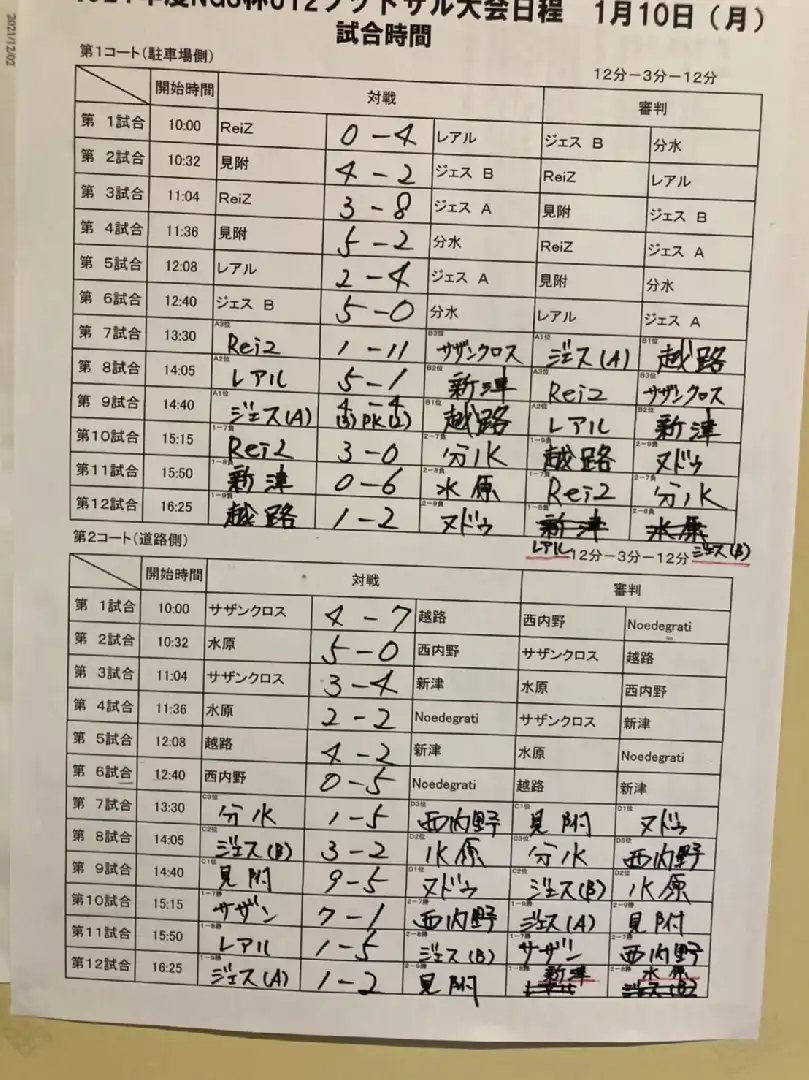 2021/12/02
年度NGS杯U12フットサル大会日程 1月10日（月）
試合時間
第1コート（駐車場側）
12分－3分－12分
開始時間 対戦 審判
第 1試合 10:00 ReiZ 0－4 レアル ジェス B 分水
第 2試合 10:32 見附 4－2 ジェス B ReiZ レアル
第 3試合 11:04 ReiZ 3－8 ジェス A 見附 ジェス B
第 4試合 11:36 見附 5－2 分水 ReiZ ジェス A
第 5試合 12:08 レアル 2－4 ジェス A 見附 分水
第 6試合 12:40 ジェス B 5－0 分水 レアル ジェス A
第 7試合 13:30 A3位 ReiZ 1－11 B3位 サザンクロス A1位 ジェス(A) B1位 越路
第 8試合 14:05 A2位 レアル 5－1 B2位 新津 A3位 ReiZ B3位 サザンクロス
第 9試合 14:40 A1位 ジェス(A) 4－4 (3)PK(2) B1位 越路 A2位 レアル B2位 新津
第10試合 15:15 1－7負 ReiZ 3－0 2－7負 分水 1－9負 越路 2－9負 ヌドゥ
第11試合 15:50 1－8負 新津 0－6 2－8負 水原 1－7負 ReiZ 2－7負 分水
第12試合 16:25 1－9負 越路 1－2 2－9負 ヌドゥ 1－8負 新津 2－8負 水原
レアル 12分－3分－12分 ジェス(B)
第2コート（道路側）
開始時間 対戦 審判
第 1試合 10:00 サザンクロス 4－7 越路 西内野 Noedegrati
第 2試合 10:32 水原 5－0 西内野 サザンクロス 越路
第 3試合 11:04 サザンクロス 3－4 新津 水原 西内野
第 4試合 11:36 水原 2－2 Noedegrati サザンクロス 新津
第 5試合 12:08 越路 4－2 新津 水原 Noedegrati
第 6試合 12:40 西内野 0－5 Noedegrati 越路 新津
第 7試合 13:30 C3位 分水 1－5 D3位 西内野 C1位 見附 D1位 ヌドゥ
第 8試合 14:05 C2位 ジェス(B) 3－2 D2位 水原 C3位 分水 D3位 西内野
第 9試合 14:40 C1位 見附 9－5 D1位 ヌドゥ C2位 ジェス(B) D2位 水原
第10試合 15:15 1－7勝 サザン 7－1 2－7勝 西内野 1－9勝 ジェス(A) 2－9勝 見附
第11試合 15:50 1－8勝 レアル 1－5 2－8勝 ジェス(B) 1－7勝 サザン 2－7勝 西内野
第12試合 16:25 1－9勝 ジェス(A) 1－2 2－9勝 見附 1－8勝 新津 レアル 2－8勝 水原 ジェス(B)